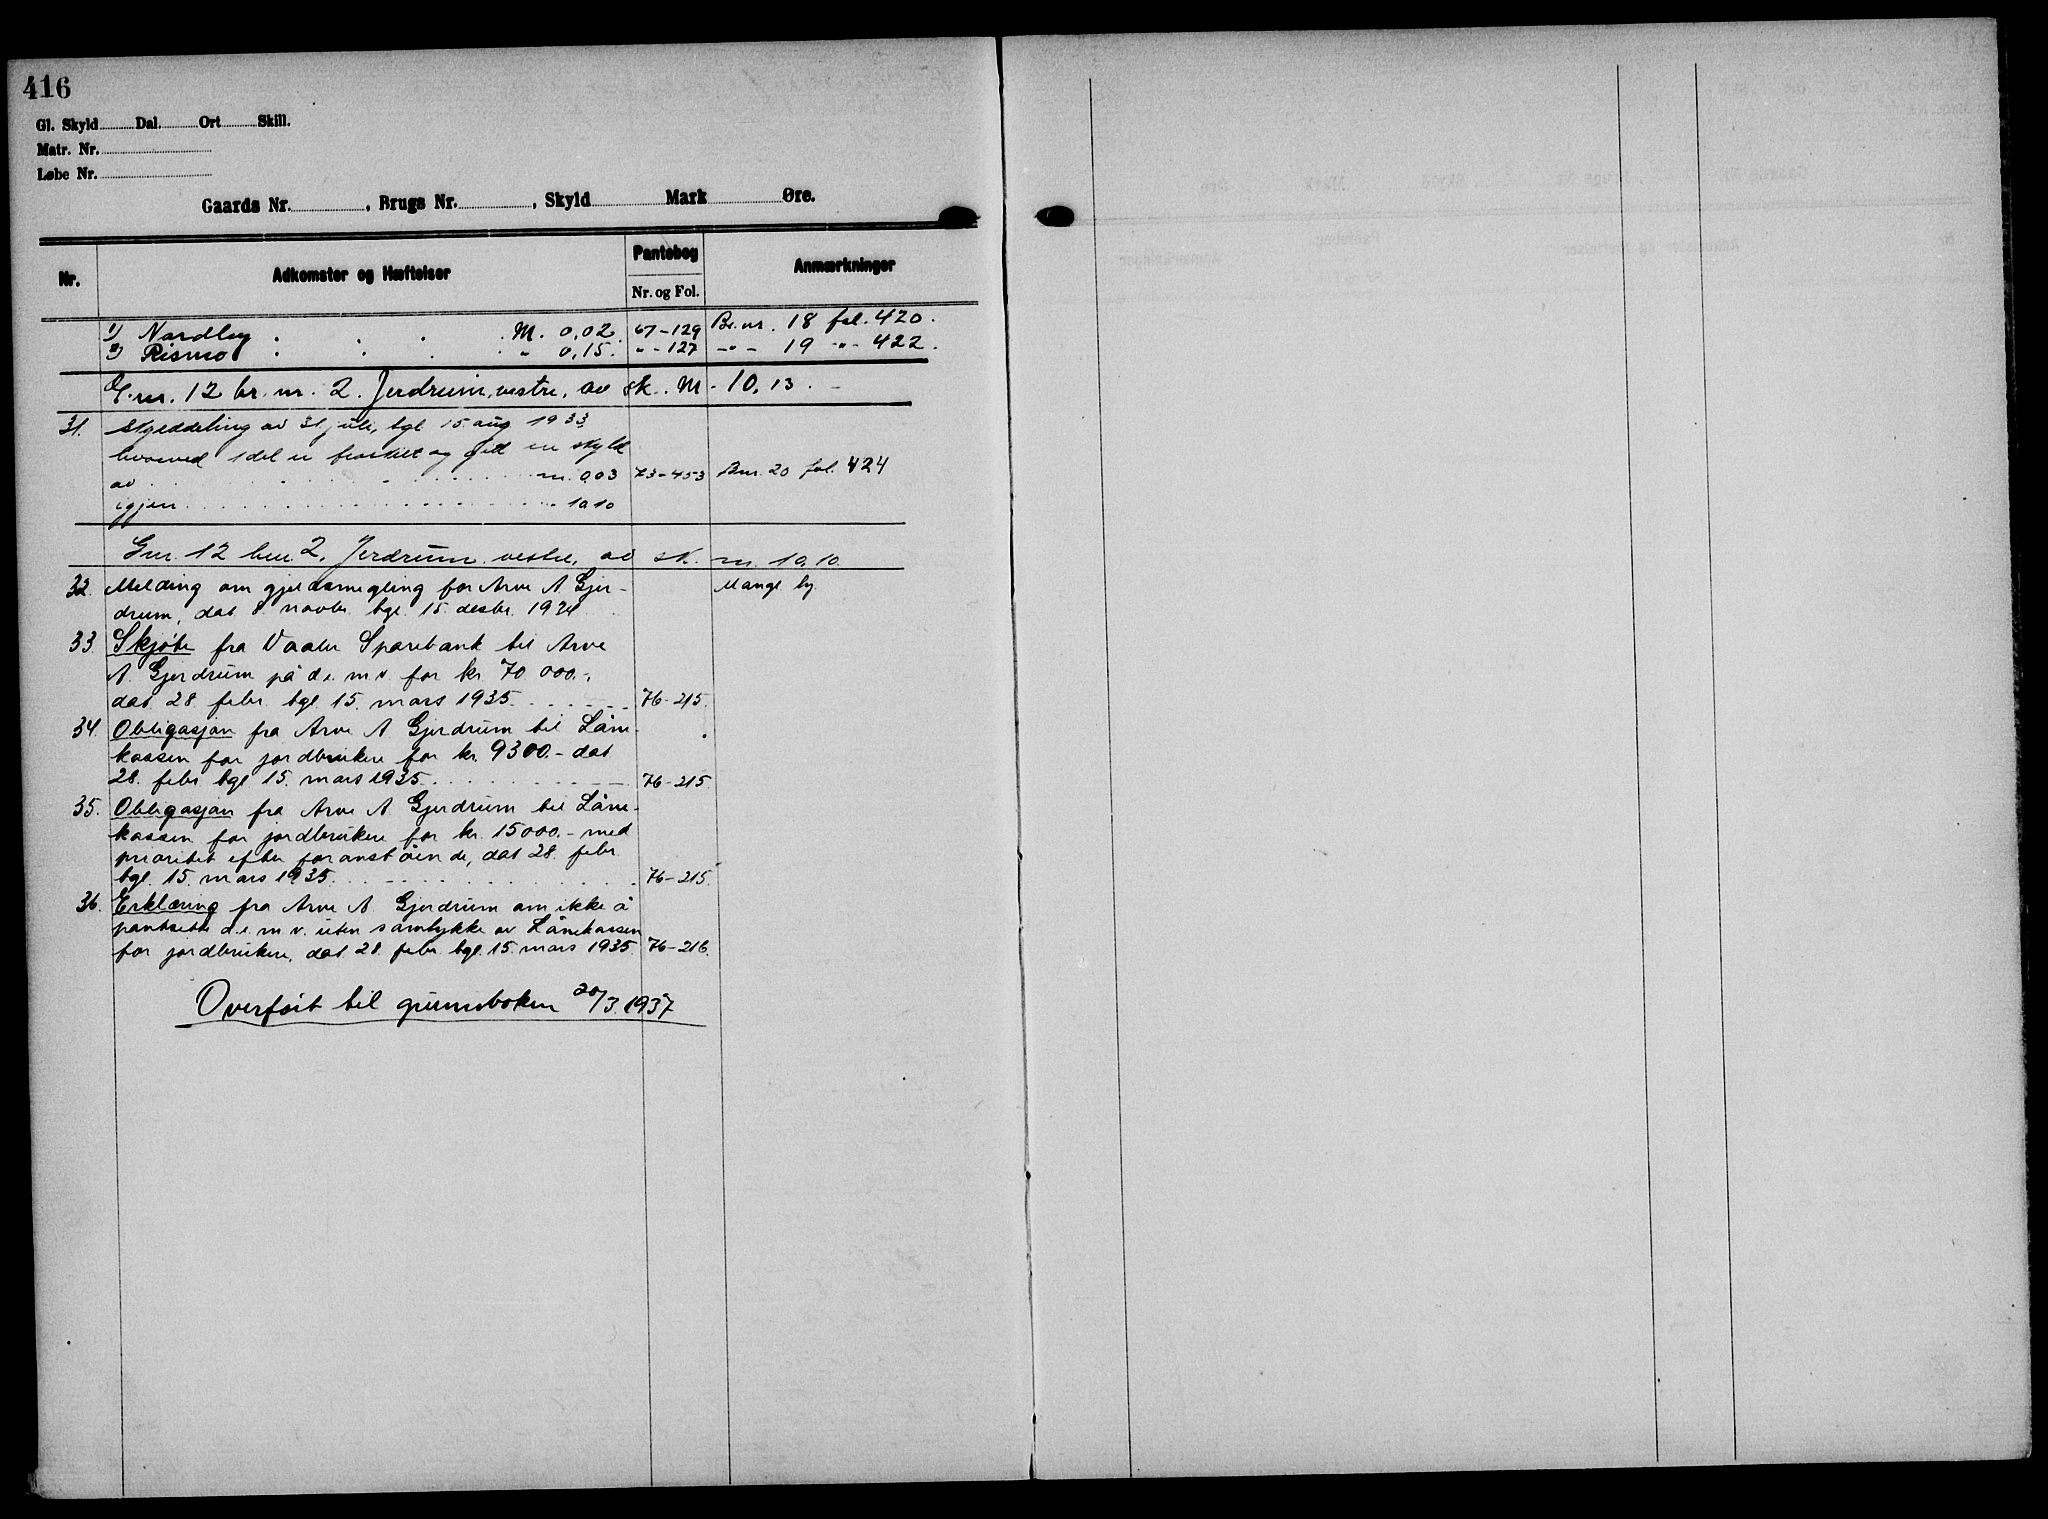 416
Gl. Skyld Dal. Ort Skill.
Matr. Nr.
Løbe Nr.
Gaards Nr. , Brugs Nr. , Skyld Mark Øre.
Nr. Adkomster og Hæftelser Pantebog Anmærkninger
Nr. og Fol.
1) Nordby M. 0,02. 67-129 Br.nr. 18 fol. 420.
2) Rismo " 0,15. " - 127 - " - 19 - " - 422.
G.nr. 12 br.nr. 2. Jerdrum, vestre, av sk. M. 10,13.
31. Skylddeling av 31 juli, tgl. 15 aug 1933
hvorved 1 del er fraskilt og git en skyld
av m. 0,03 73-453 Bnr. 20 fol. 424
igjen " 10,10
Gnr. 12 bnr. 2. Jerdrum vestre, av sk. m. 10,10.
32. Melding om gjeldsmegling for Arve A Gjer-
drum, dat 8. novbr. tgl. 15. desbr. 1934
33. Skjøte fra Vaaler Sparebank til Arve
A. Gjerdrum på d.e. m.v. for kr. 70 000.-,
dat 28. febr. tgl. 15. mars 1935 76-215.
34. Obligasjon fra Arve A Gjerdrum til Låne-
kassen for jordbrukere for kr. 9300.- dat
28. febr tgl 15. mars 1935. 76-215.
35. Obligasjon fra Arve A Gjerdrum til Låne-
kassen for jordbrukere for kr. 15000.- med
prioritet efter foranstående, dat 28. febr.
tgl. 15. mars 1935. 76-215.
36. Erklæring fra Arve A. Gjerdrum om ikke å
pantsette d.e. m.v. uten samtykke av Lånekassen
for jordbrukere, dat 28. febr. tgl. 15. mars 1935. 76-216.
Overført til grunnboken 20/3. 1937